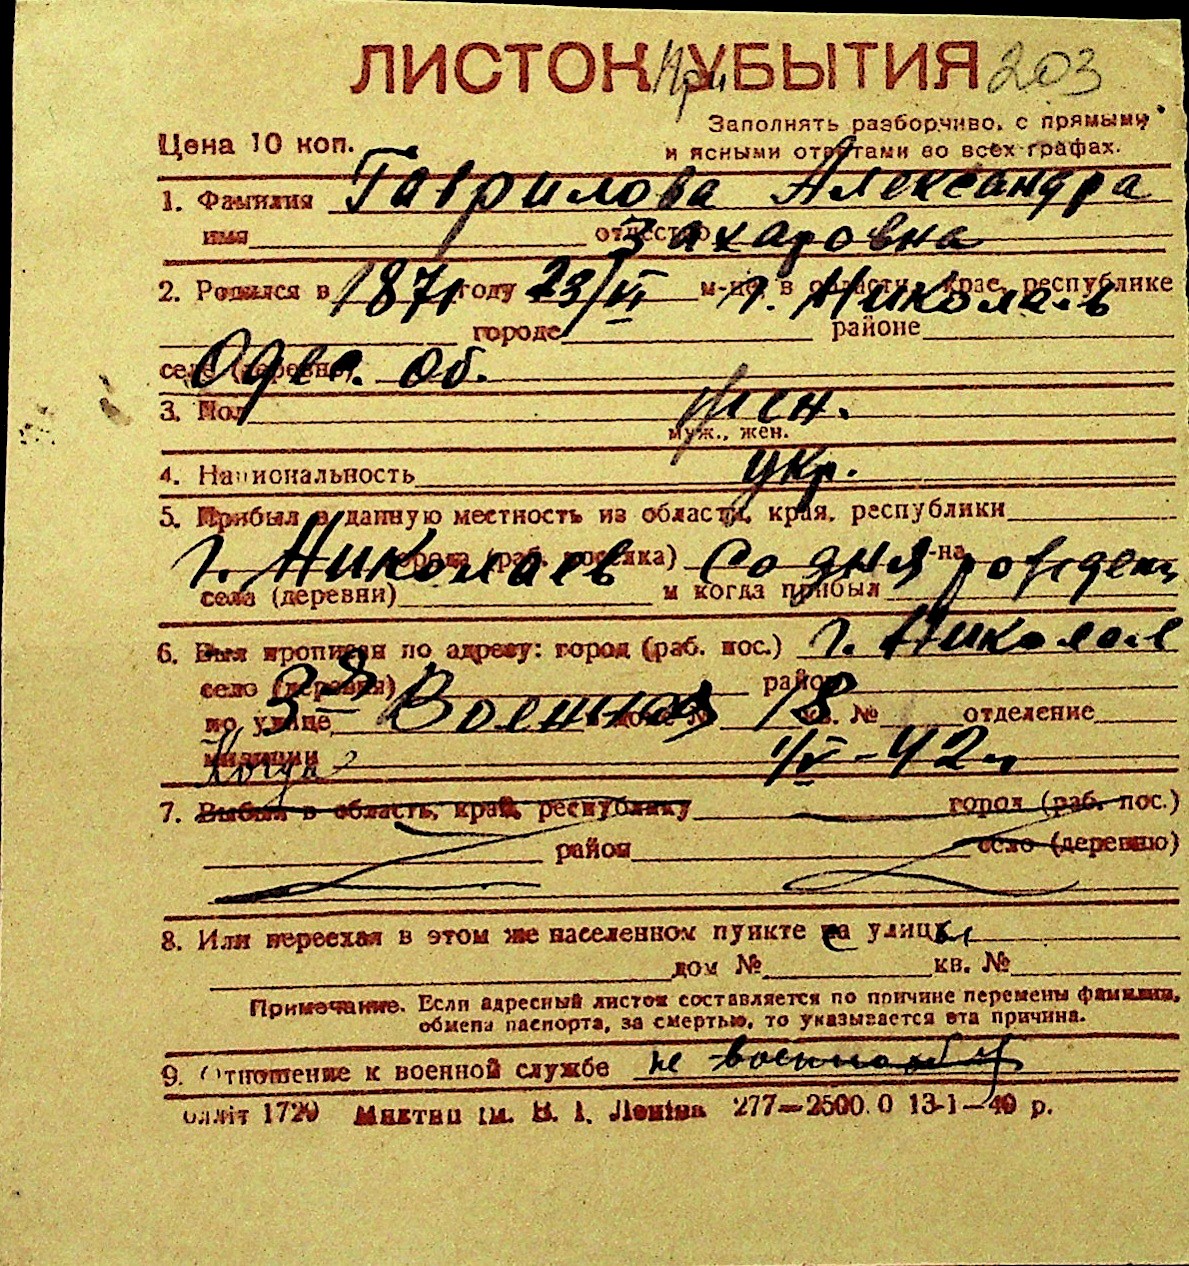 ЛИСТОК УБЫТИЯ При 203
Заполнять разборчиво, с прямыми
Цена 10 коп. и ясными ответами во всех графах.
1. Фамилия Гаврилова Александра
имя отчество Захаровна
2. Родился в 1871 году 23/VI м-це, в области, крае, республике г. Николаев
городе районе
селе (деревне) Одес. Об.
3. Пол жен.
муж., жен.
4. Национальность укр.
5. Прибыл в данную местность из области, края, республики
города (раб. поселка) р-на
г. Николаев Со дня рожден
села (деревни) и когда прибыл
6. Был прописан по адресу: город (раб. пос.) г. Николаев
село (деревня) район
по улице 3я Военная дом № 18 кв. № отделение
милиции 1/V-42 г
7. Выбыл в область, край, республику город (раб. пос.)
район село (деревню)
8. Или переехал в этом же населенном пункте на улицу
дом № кв. №
Примечание. Если адресный листок составляется по причине перемены фамилии,
обмена паспорта, за смертью, то указывается эта причина.
9. Отношение к военной службе не военнооб
1720 ім. В. І. Леніна 277—2500.0 13-1—40 р.